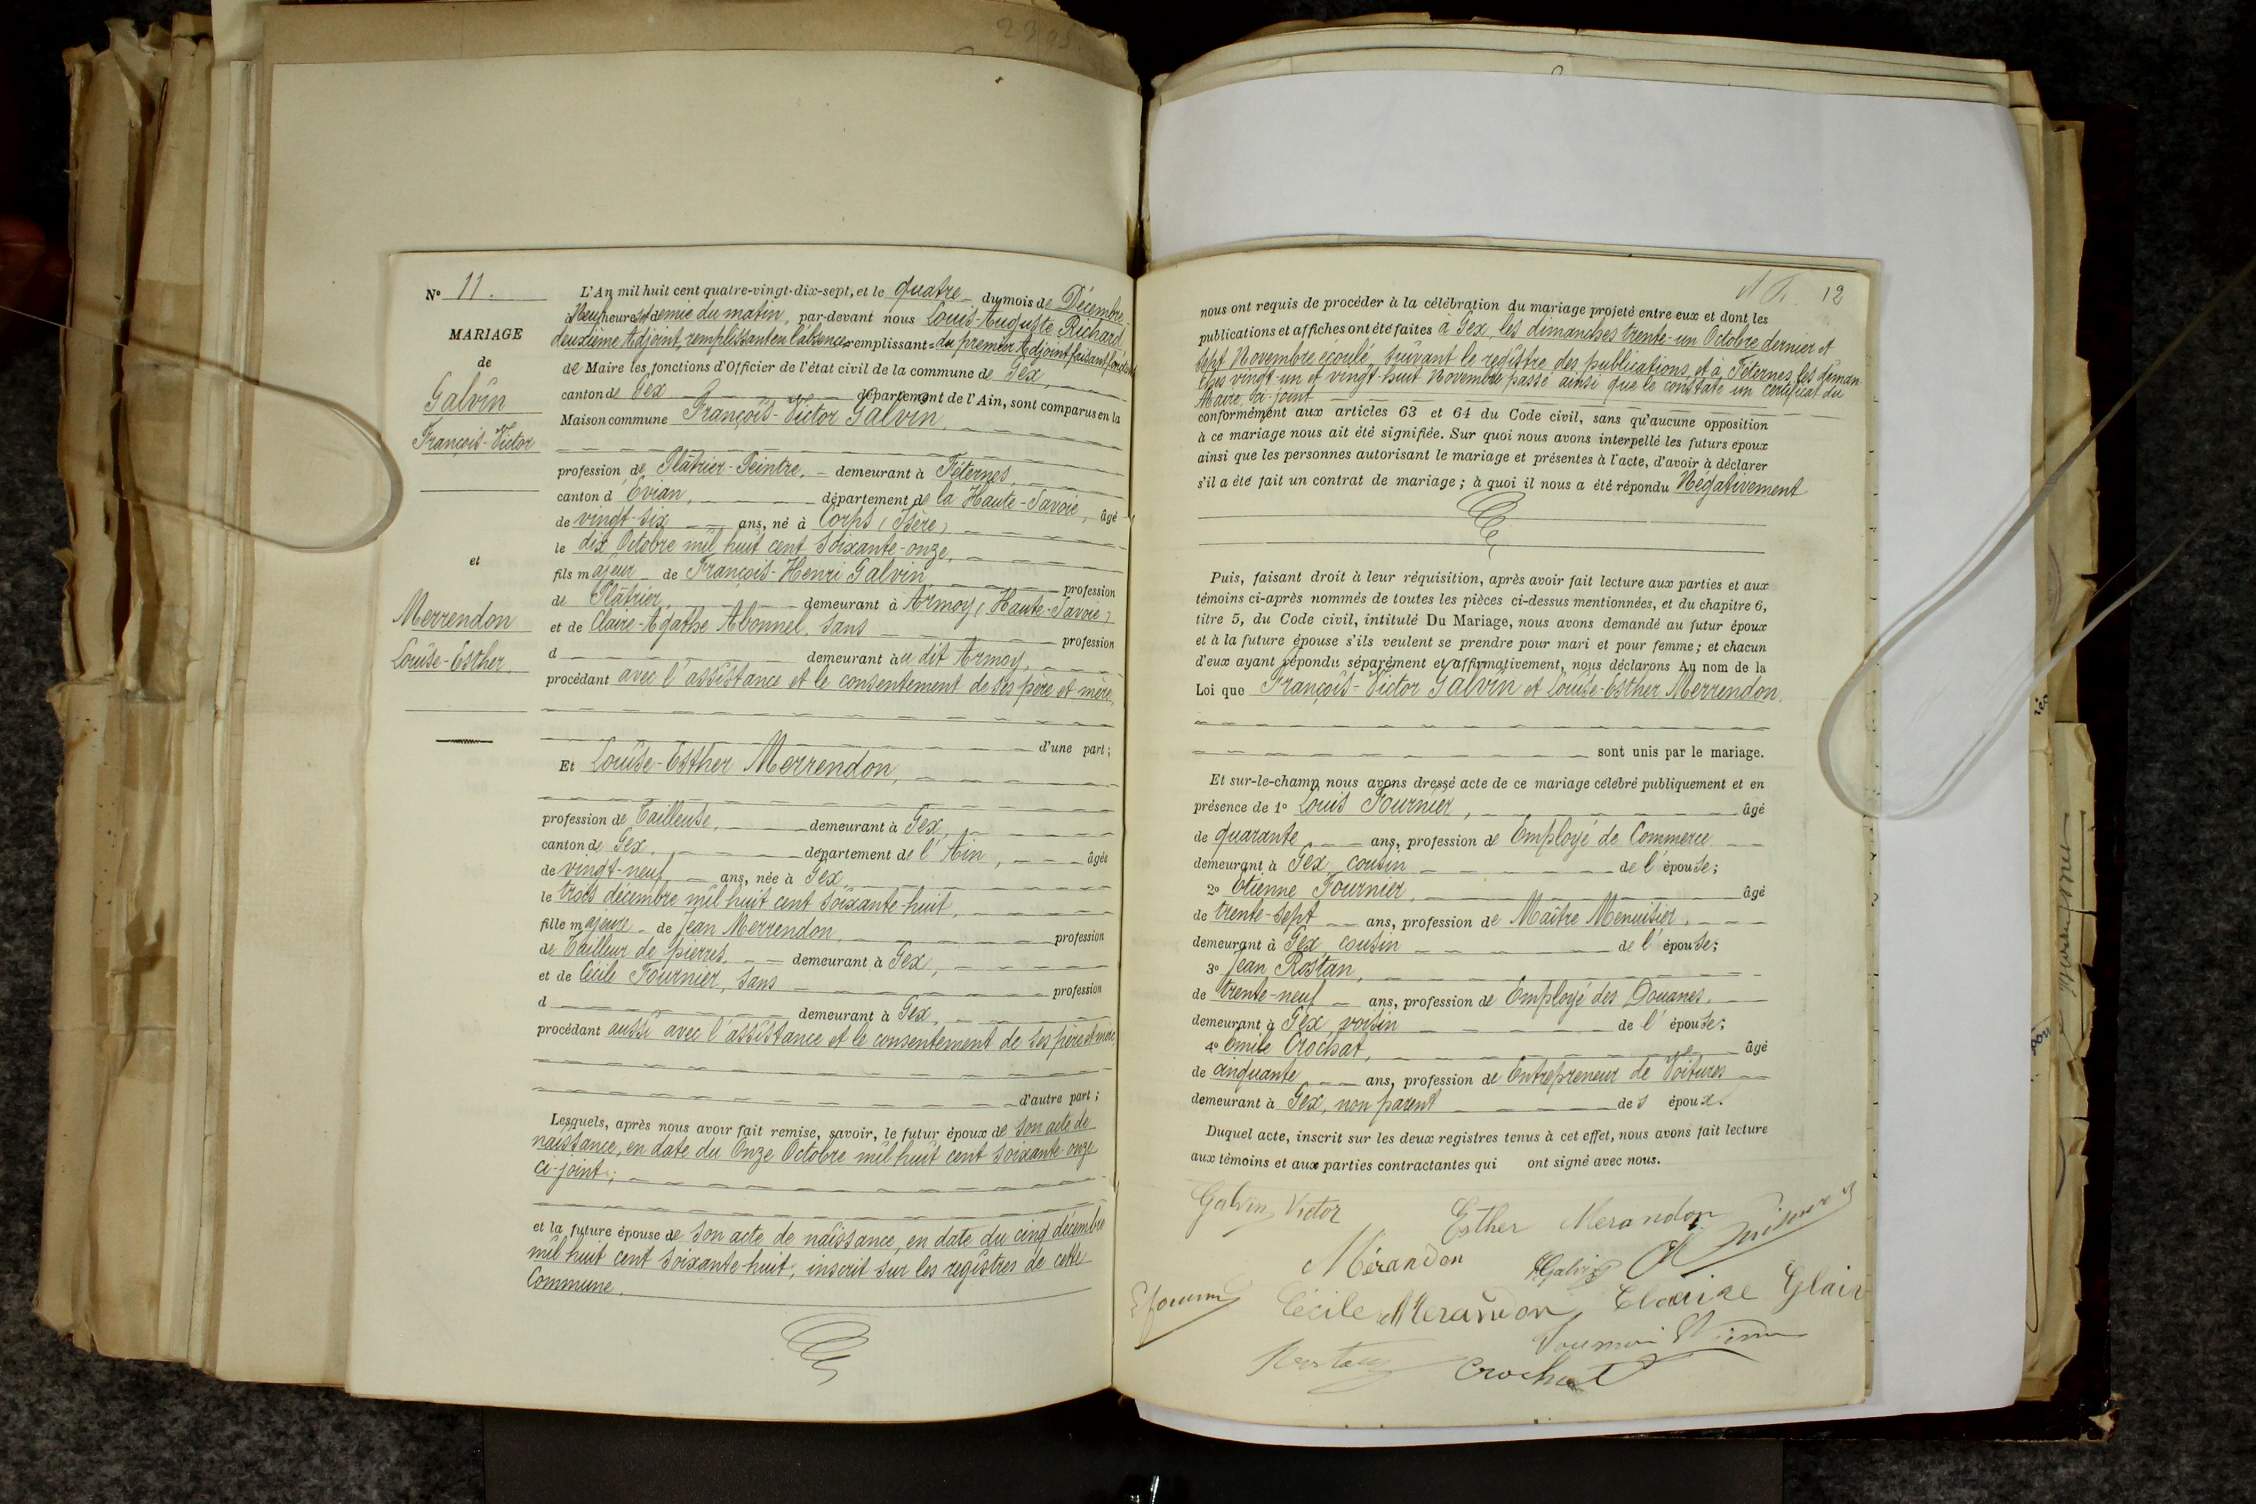 N° 11.
MARIAGE
de
Galvin
François-Victor
et
Merrendon
Louise-Esther.
L'An mil huit cent quatre-vingt-dix-sept, et le quatre du mois de Décembre
à Neuf heures et demie du matin, par-devant nous Louis-Auguste Richard
deuxième Adjoint, remplissant en l'absence remplissant du premier Adjoint faisant fonctions
de Maire les fonctions d'Officier de l'état civil de la commune de Gex,
canton de Gex département de l'Ain, sont comparus en la
Maison commune François-Victor Galvin,
profession de Plâtrier-Peintre, demeurant à Féternes,
canton d'Evian, département de la Haute-Savoie, âgé
de vingt-six ans, né à Corps (Isère)
le dix Octobre mil huit cent soixante-onze,
fils majeur de François-Henri Galvin profession
de Plâtrier demeurant à Armoy (Haute-Savoie)
et de Claire-Agathe Abonnel, sans profession
d demeurant à u dit Armoy,
procédant avec l'assistance et le consentement de ses père et mère,
d'une part;
Et Louise-Esther Merrendon,
profession de Tailleuse, demeurant à Gex,
canton de Gex, département de l'Ain, âgée
de vingt-neuf ans, née à Gex,
le trois décembre mil huit cent soixante-huit,
fille majeure de Jean Merrendon, profession
de Tailleur de pierres, demeurant à Gex,
et de Cécile Fournier, sans profession
d demeurant à Gex,
procédant aussi avec l'assistance et le consentement de ses père et mère,
d'autre part;
Lesquels, après nous avoir fait remise, savoir, le futur époux de son acte de
naissance, en date du Onze Octobre mil huit cent soixante-onze
ci-joint;
et la future épouse de son acte de naissance, en date du cinq décembre
mil huit cent soixante-huit, inscrit sur les registres de cette
Commune.
12
nous ont requis de procéder à la célébration du mariage projeté entre eux et dont les
publications et affiches ont été faites à Gex, les dimanches trente-un Octobre dernier et
sept Novembre écoulé, suivant le registre des publications, et à Féternes, les diman
ches vingt-un et vingt-huit Novembre passé ainsi que le constate un certificat du
Maire, ci-joint
conformément aux articles 63 et 64 du Code civil, sans qu'aucune opposition
à ce mariage nous ait été signifiée. Sur quoi nous avons interpellé les futurs époux
ainsi que les personnes autorisant le mariage et présentes à l'acte, d'avoir à déclarer
s'il a été fait un contrat de mariage; à quoi il nous a été répondu Négativement
Puis, faisant droit à leur réquisition, après avoir fait lecture aux parties et aux
témoins ci-après nommés de toutes les pièces ci-dessus mentionnées, et du chapitre 6,
titre 5, du Code civil, intitulé Du Mariage, nous avons demandé au futur époux
et à la future épouse s'ils veulent se prendre pour mari et pour femme; et chacun
d'eux ayant répondu séparément et affirmativement, nous déclarons Au nom de la
Loi que François-Victor Galvin et Louise-Esther Merrendon.
sont unis par le mariage.
Et sur-le-champ nous avons dressé acte de ce mariage célébré publiquement et en
présence de 1° Louis Fournier, âgé
de quarante ans, profession de Employé de Commerce
demeurant à Gex, cousin de l'épouse;
2° Etienne Fournier, âgé
de trente-sept ans, profession de Maître Menuisier,
demeurant à Gex, cousin de l'épouse;
3° Jean Rostan,
de trente-neuf ans, profession de Employé des Douanes,
demeurant à Gex, voisin de l'épouse;
4° Emile Crochat, âgé
de cinquante ans, profession de Entrepreneur de Voitures
demeurant à Gex, non parent des époux.
Duquel acte, inscrit sur les deux registres tenus à cet effet, nous avons fait lecture
aux témoins et aux parties contractantes qui ont signé avec nous.
Galvin Victor
Esther Merandon
Mérandon
Galvin
Cécile Merandon
Crochat